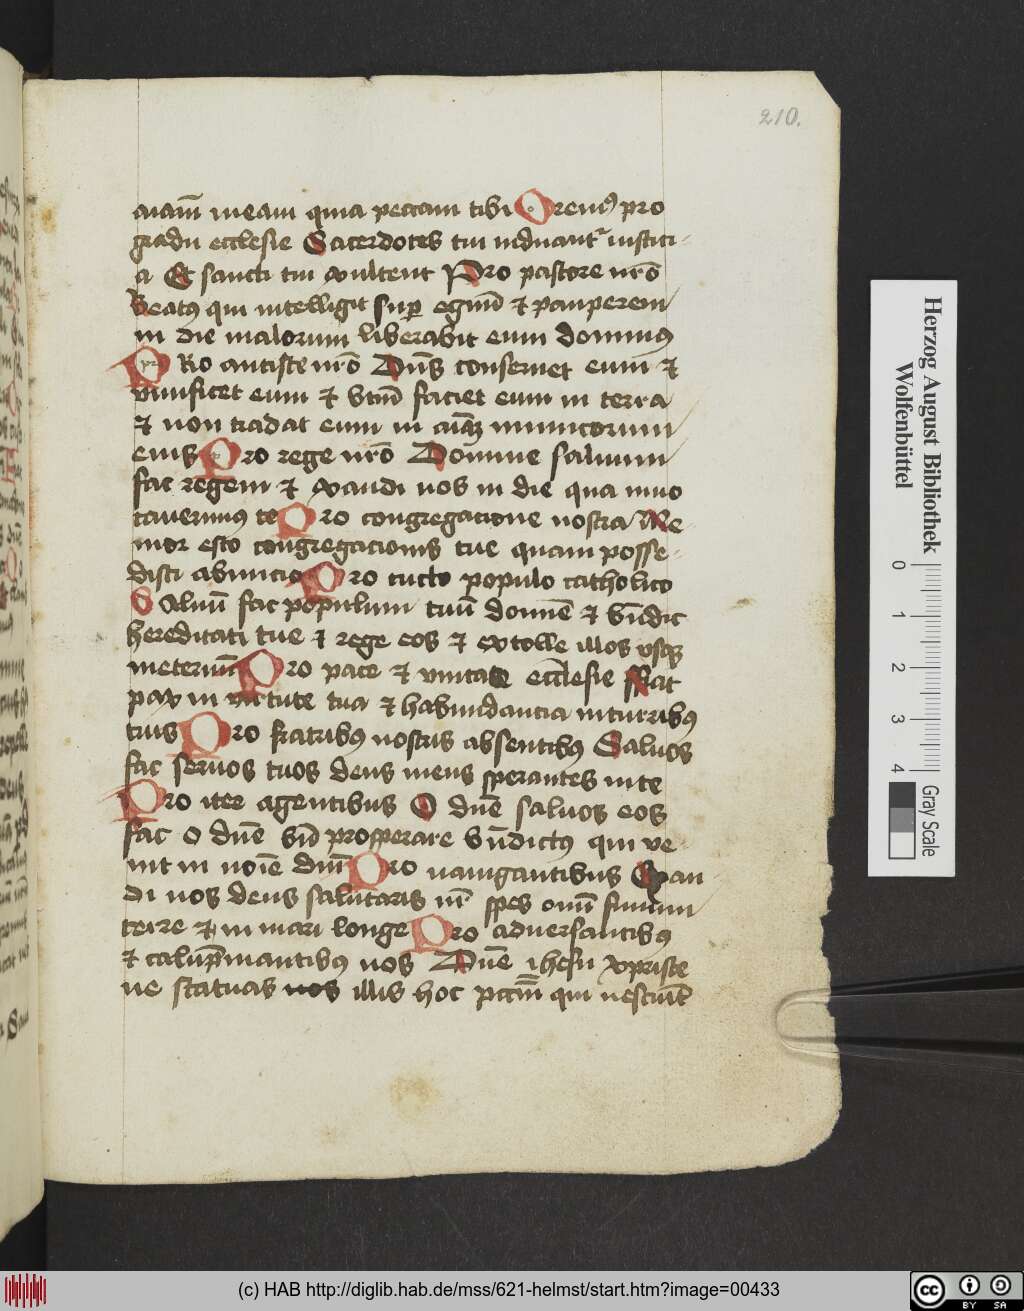 210.
aiam̅ meam quia peccaui tibi Oremꝰ pro
gradu ecclesie Sacerdotes tui induant᷑ iustici-
a Et sancti tui exultent Pro pastore nr̅o
Beatꝰ qui intelligit suꝑ egenu̅ et pauperem
in die malorum liberabit eum dominus
PRo antiste nr̅o Dn̅s conseruet eum et
viuificet eum et btm̅ faciet eum in terra
et non tradat eum in ai̅aꝫ inimicorum
eius Pro rege nr̅o Domine saluum
fac regem et exaudi nos in die qua inuo
cauerimꝰ te Pro congregacione nostra Me
mor esto congregacionis tue quam posse-
disti ab inicio Pro cuncto populo catholico
Saluu̅ fac populum tuu̅ domi̅e et bn̅dic
hereditati tue et rege eos et extolle illos vsqꝫ
ineternu̅ Pro pace et vnitate eccl̅esie Fiat
pax in virtute tua et habundancia in turribꝰ
tuis Pro fratribꝰ nostris absentibꝰ Saluos
fac seruos tuos deus meus sperantes in te
Pro iter agentibus O dn̅e saluos eos
fac o dn̅e bn̅ prosperare bn̅dictꝰ qui ve-
nit in noi̅e dni̅ Pro nauigantibus Exau
di nos deus salutaris nr̅ spes omi̅ finium
terre et in mari longe Pro aduersantibꝰ
et calu̅pniantibꝰ nos Dn̅e ihesu xpriste
ne statuas nos illis hoc pctm̅ qui nesciu̅t
Herzog August Bibliothek
Wolfenbüttel
0 1 2 3 4
Gray Scale
(c) HAB http://diglib.hab.de/mss/621-helmst/start.htm?image=00433
cc BY SA